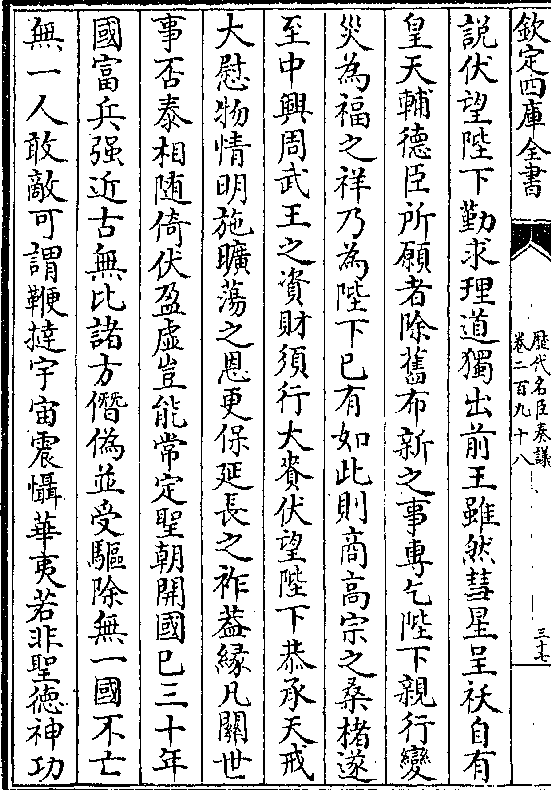 欽定四庫全書
歷代名臣奏議
卷二百九十八
三十七
説伏望陛下勤求理道獨出前王雖然彗星呈祅自有
皇天輔德臣所願者除舊布新之事専乞陛下親行變
災為福之祥乃為陛下已有如此則商高宗之桑楮遂
至中興周武王之資財須行大賚伏望陛下恭承天戒
大慰物情明施曠蕩之恩更保延長之祚葢縁凡關世
事否泰相随倚伏盈虚豈能常定聖朝開國已三十年
國富兵强近古無比諸方僭偽並受驅除無一國不亡
無一人敢敵可謂鞭撻宇宙震懾華夷若非聖徳神功